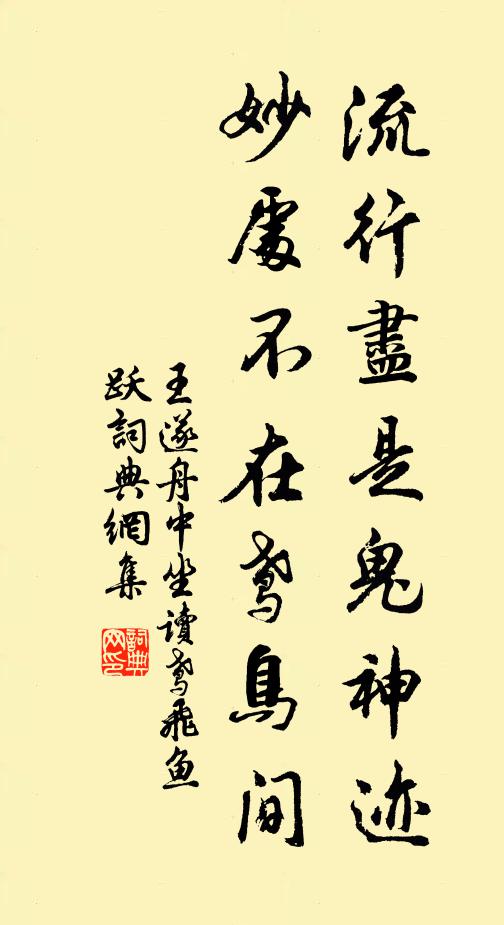 流行盡是鬼神迹
妙處不在鸢鳥間
王遂舟中坐讀鸢飛魚
跃詞典網集
詞典网印